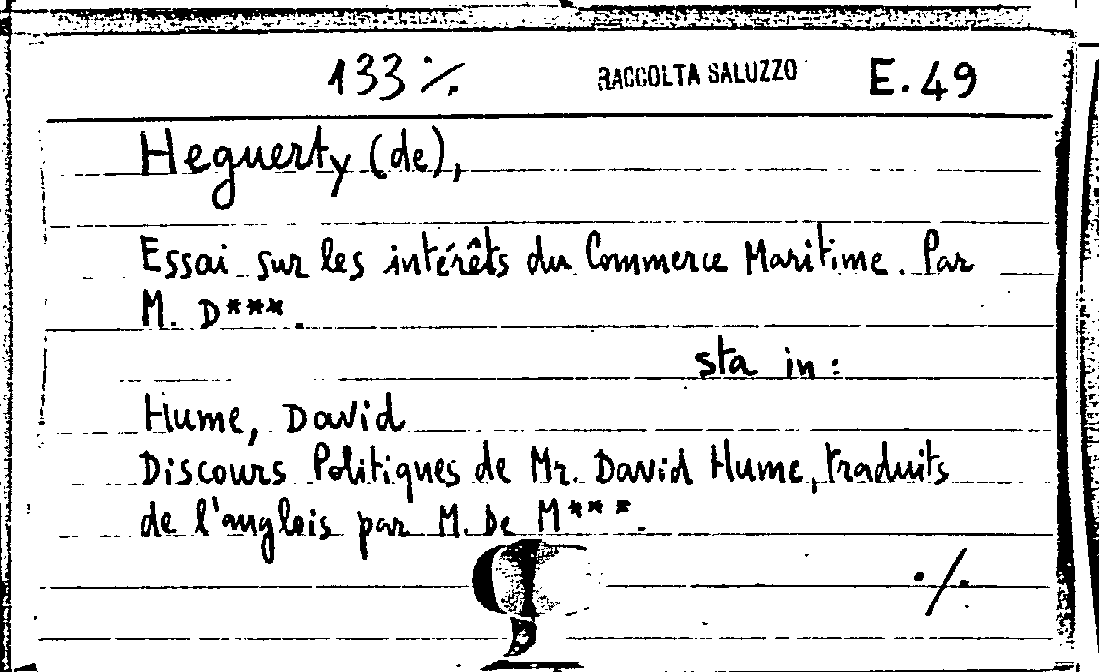 133 ./. RACCOLTA SALUZZO E.49
Heguerty (de),
Essai sur les intérêts du Commerce Maritime. Par
M. D***.
sta in :
Hume, David
Discours Politiques de Mr. David Hume, traduits
de l'anglois par M. De M***.
./.